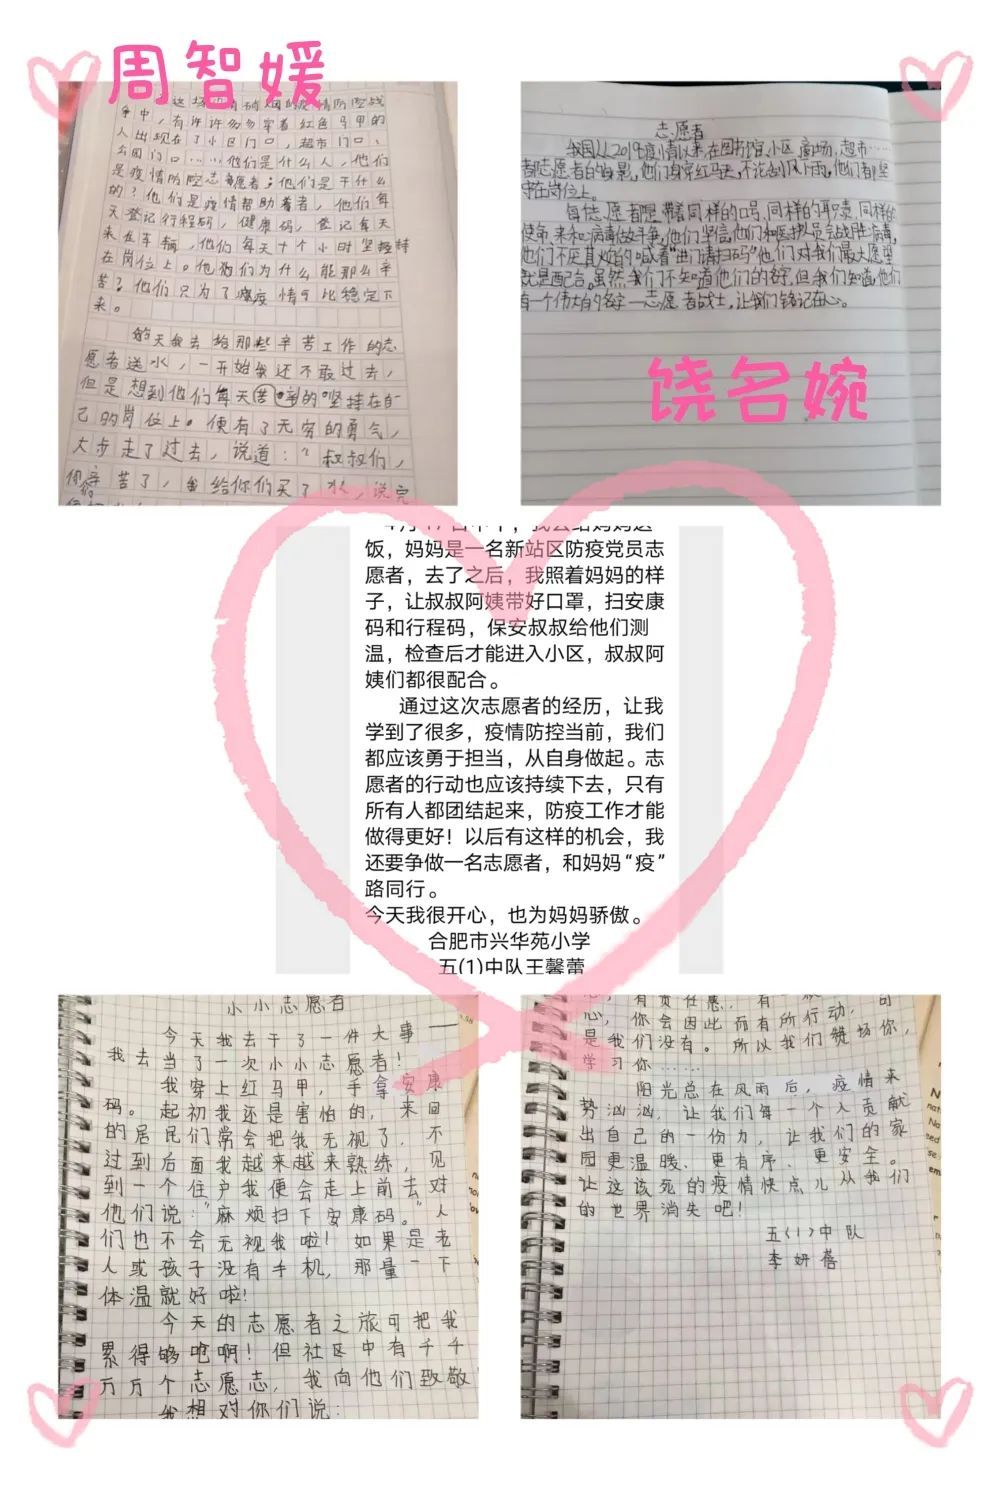 周智媛
这场没有硝烟的疫情防控战
争中，有许许多多穿着红色马甲的
人出现在了小区门口，超市门口、
公园门口……他们是什么人，他们
是疫情防控志愿者；他们是干什么
的？他们是疫情帮助者，他们每
天登记行程码，健康码，登记每天
来往车辆，他们每天十个小时坚持
在岗位上。他们为什么能那么辛
苦？他们只为了疫情可以稳定下
来。
的天我去给那些辛苦工作的志
愿者送水，一开始我还不敢过去，
但是想到他们每天苦辛的坚持在自
己的岗位上。便有了无穷的勇气，
大步走了过去，说道：“叔叔们，
你们辛苦了，我给你们买了水，说完
志愿者
我国从2019疫情以来，在图书馆、小区、商场、超市……
都志愿者的身影，他们身穿红马夹，不论刮风下雨，他们都坚
守在岗位上。
每位志愿者都带着同样的口号，同样的职责，同样的
使命，来和病毒做斗争，他们坚信他们和医护人员能战胜病毒，
他们不厌其烦的喊着“出门请扫码”他们对我们最大愿望
就是配合。虽然我们不知道他们的名字，但我们知道，他们
有一个伟大的名字—志愿者战士，让我们铭记在心。
饶名婉
4月17日中午，我去给妈妈送
饭，妈妈是一名新站区防疫党员志
愿者，去了之后，我照着妈妈的样
子，让叔叔阿姨带好口罩，扫安康
码和行程码，保安叔叔给他们测
温，检查后才能进入小区，叔叔阿
姨们都很配合。
通过这次志愿者的经历，让我
学到了很多，疫情防控当前，我们
都应该勇于担当，从自身做起。志
愿者的行动也应该持续下去，只有
所有人都团结起来，防疫工作才能
做得更好！以后有这样的机会，我
还要争做一名志愿者，和妈妈“疫”
路同行。
今天我很开心，也为妈妈骄傲。
合肥市兴华苑小学
五(1)中队王馨蕾
小小志愿者
今天我去干了一件大事——
我去当了一次小小志愿者！
我穿上红马甲，手拿安康
码。起初我还是害怕的，来回
的居民们常会把我无视了，不
过到后面我越来越来熟练，见
到一个住户我便会走上前去对
他们说：“麻烦扫下安康码。”人
们也不会无视我啦！如果是老
人或孩子没有手机，那量一下
体温就好啦！
今天的志愿者之旅可把我
累得够呛啊！但社区中有千千
万万个志愿志，我向他们致敬
我想对你们说：
心，有责任感，有一
心，你会因此而有所行动，
是我们没有。所以我们赞扬你，
学习你……
阳光总在风雨后，疫情来
势汹汹，让我们每一个人贡献
出自己的一份力，让我们的家
园更温暖、更有序、更安全。
让这该死的疫情快点儿从我们
的世界消失吧！
五(1)中队
李妍蓓